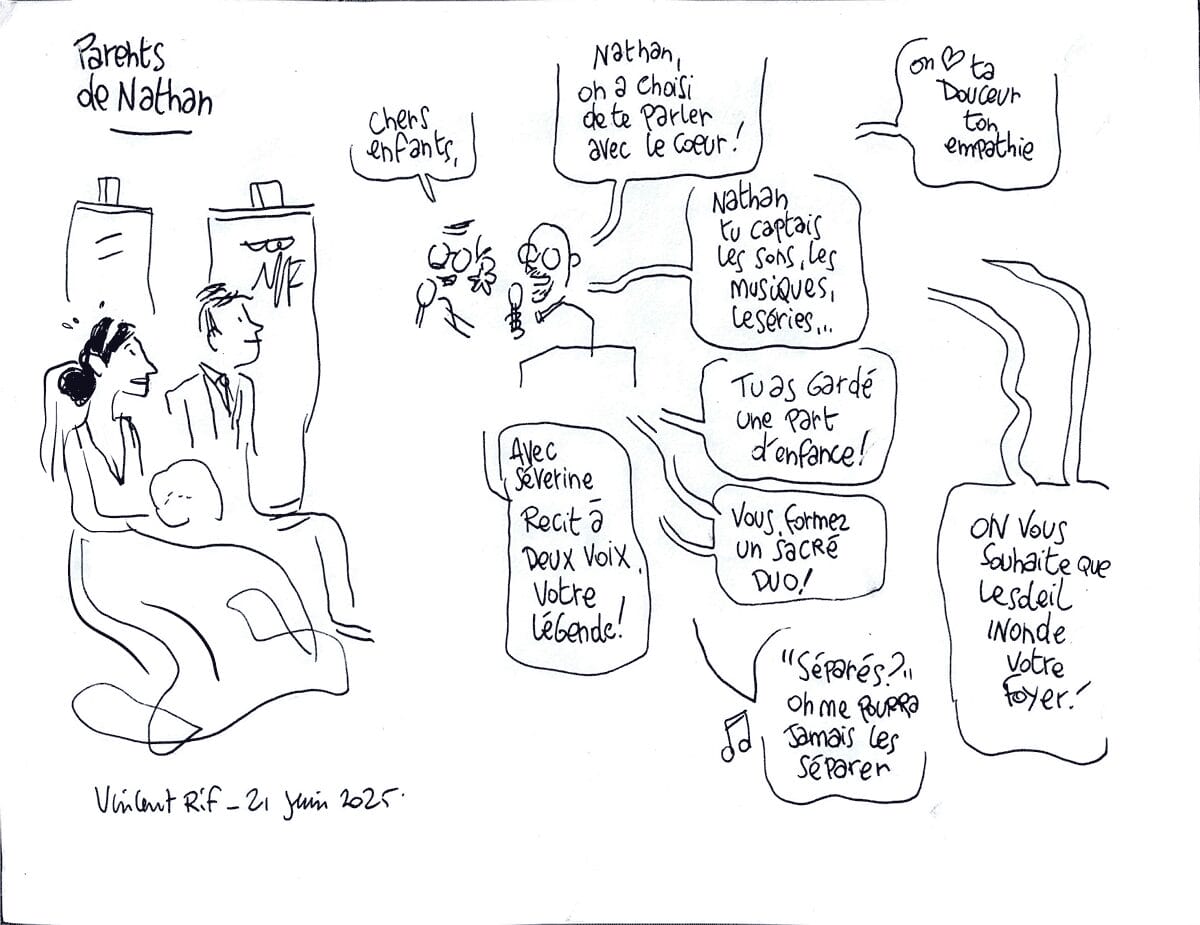 Parents
de Nathan
chers
enfants,
Nathan,
on a choisi
de te Parler
avec le coeur!
on ♡ ta
Douceur
ton
empathie
Nathan
tu captais
Les sons, Les
musiques,
Les séries...
Tu as Gardé
une part
d'enfance!
Avec
Séverine
Recit à
Deux voix,
Votre
Légende!
Vous formez
un sacré
Duo!
"Séparés?"
oh me pourra
Jamais les
Séparer
ON Vous
Souhaite que
Lesoleil
iNonde
Votre
foyer!
MF
Vincent Rif - 21 juin 2025.